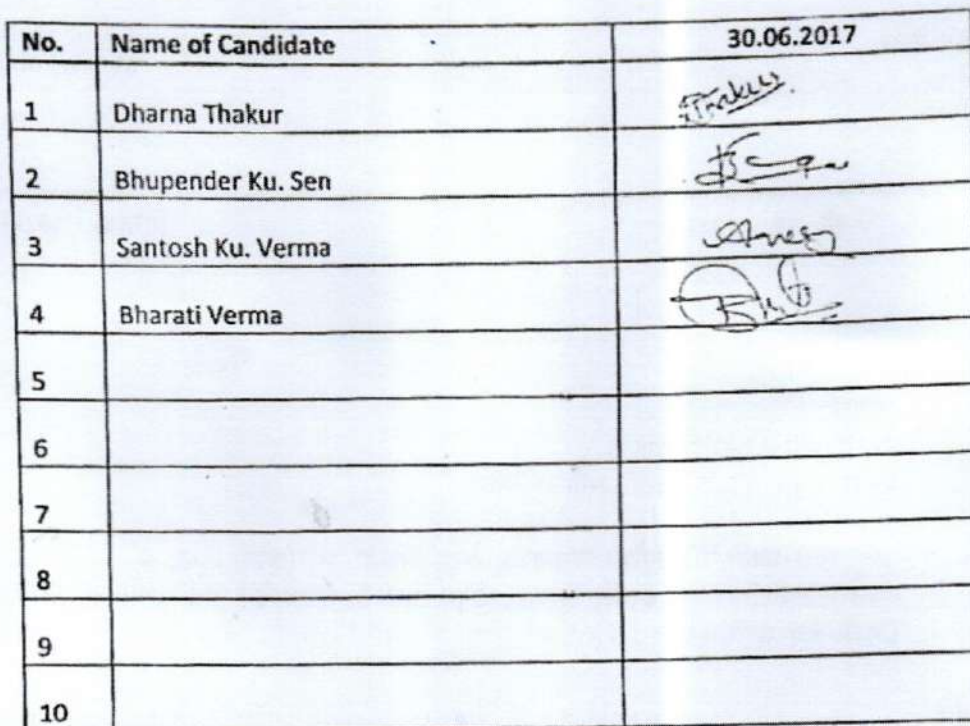 No. Name of Candidate 30.06.2017
1 Dharna Thakur Thakur
2 Bhupender Ku. Sen
3 Santosh Ku. Verma
4 Bharati Verma
5
6
7
8
9
10